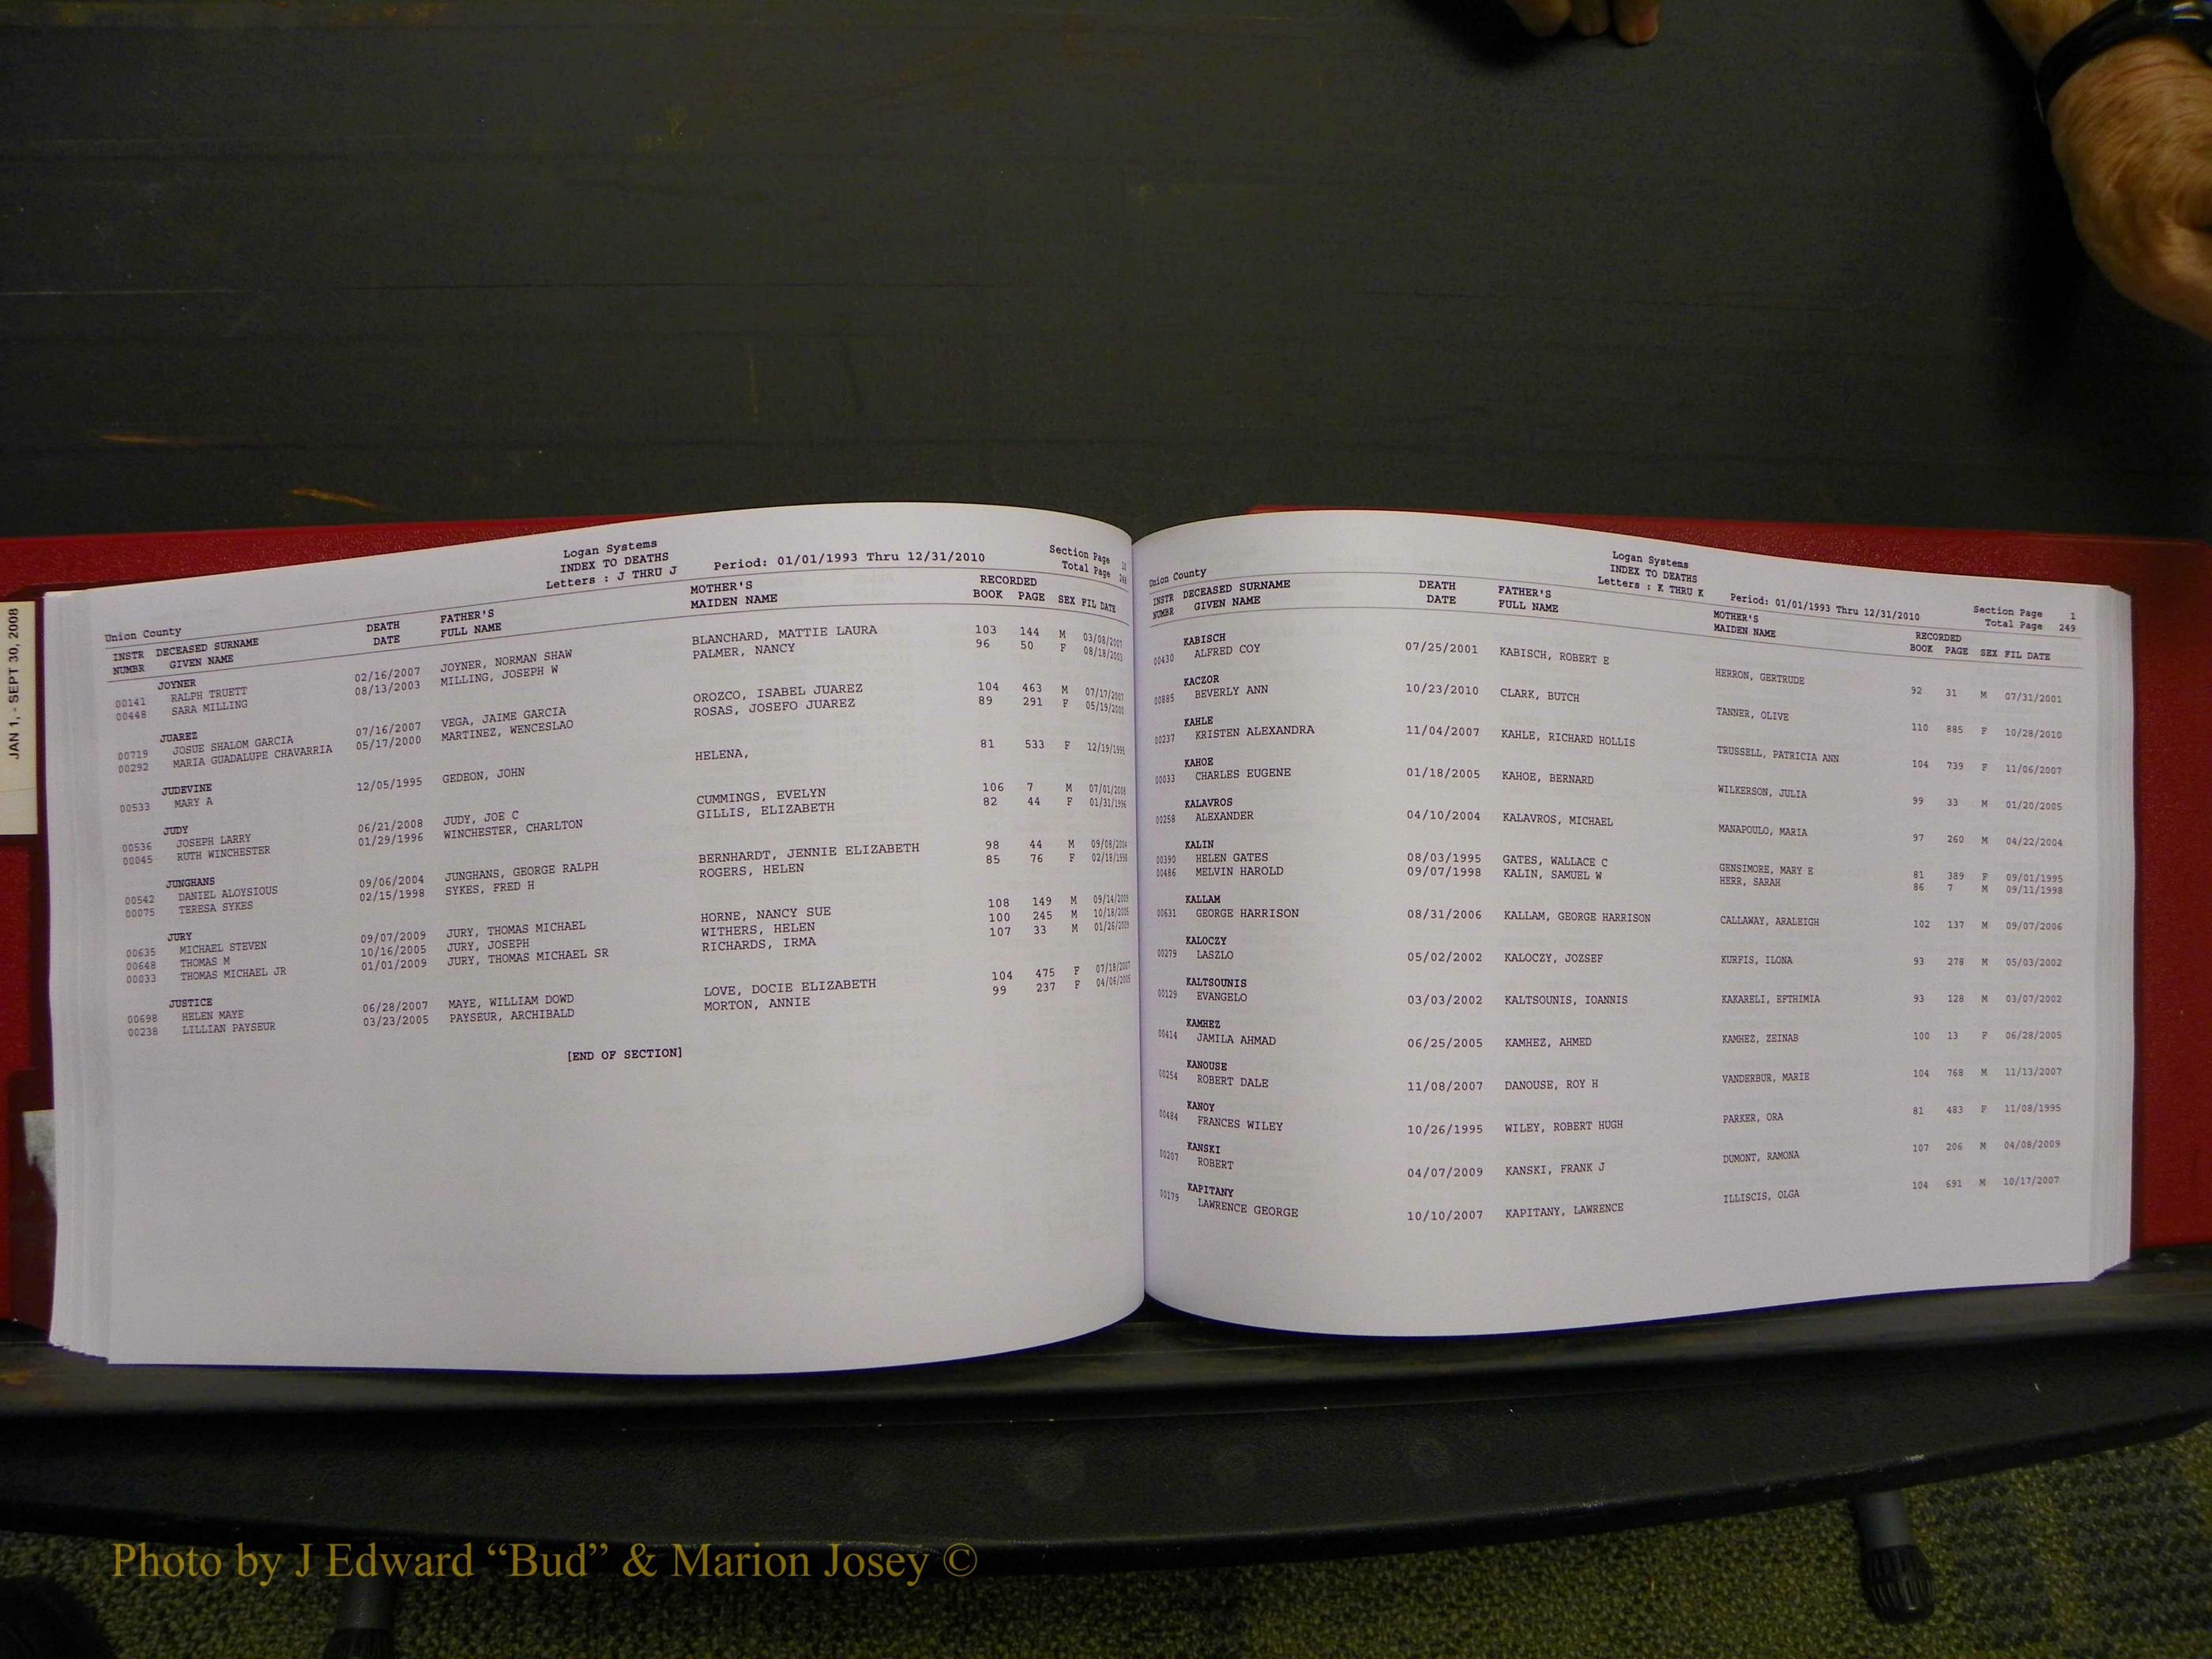 JAN 1, - SEPT 30, 2008
Logan Systems
INDEX TO DEATHS
Letters : J THRU J
Period: 01/01/1993 Thru 12/31/2010
Section Page
Total Page
Union County
INSTR NUMBR DECEASED SURNAME GIVEN NAME DEATH DATE FATHER'S FULL NAME MOTHER'S MAIDEN NAME RECORDED BOOK PAGE SEX FIL DATE
JOYNER
00141 RALPH TRUETT 02/16/2007 JOYNER, NORMAN SHAW BLANCHARD, MATTIE LAURA 103 144 M 03/08/2007
00448 SARA MILLING 08/13/2003 MILLING, JOSEPH W PALMER, NANCY 96 50 F 08/18/2003
JUAREZ
00719 JOSUE SHALOM GARCIA 07/16/2007 VEGA, JAIME GARCIA OROZCO, ISABEL JUAREZ 104 463 M 07/17/2007
00292 MARIA GUADALUPE CHAVARRIA 05/17/2000 MARTINEZ, WENCESLAO ROSAS, JOSEFO JUAREZ 89 291 F 05/19/2000
JUDEVINE
00533 MARY A 12/05/1995 GEDEON, JOHN HELENA, 81 533 F 12/19/1995
JUDY
00536 JOSEPH LARRY 06/21/2008 JUDY, JOE C CUMMINGS, EVELYN 106 7 M 07/01/2008
00045 RUTH WINCHESTER 01/29/1996 WINCHESTER, CHARLTON GILLIS, ELIZABETH 82 44 F 01/31/1996
JUNGHANS
00542 DANIEL ALOYSIOUS 09/06/2004 JUNGHANS, GEORGE RALPH BERNHARDT, JENNIE ELIZABETH 98 44 M 09/08/2004
00075 TERESA SYKES 02/15/1998 SYKES, FRED H ROGERS, HELEN 85 76 F 02/18/1998
JURY
00635 MICHAEL STEVEN 09/07/2009 JURY, THOMAS MICHAEL HORNE, NANCY SUE 108 149 M 09/14/2009
00648 THOMAS M 10/16/2005 JURY, JOSEPH WITHERS, HELEN 100 245 M 10/18/2005
00033 THOMAS MICHAEL JR 01/01/2009 JURY, THOMAS MICHAEL SR RICHARDS, IRMA 107 33 M 01/26/2009
JUSTICE
00698 HELEN MAYE 06/28/2007 MAYE, WILLIAM DOWD LOVE, DOCIE ELIZABETH 104 475 F 07/18/2007
00238 LILLIAN PAYSEUR 03/23/2005 PAYSEUR, ARCHIBALD MORTON, ANNIE 99 237 F 04/06/2005
[END OF SECTION]
Logan Systems
INDEX TO DEATHS
Letters : K THRU K
Period: 01/01/1993 Thru 12/31/2010
Section Page 1
Total Page 249
Union County
INSTR NUMBR DECEASED SURNAME GIVEN NAME DEATH DATE FATHER'S FULL NAME MOTHER'S MAIDEN NAME RECORDED BOOK PAGE SEX FIL DATE
KABISCH
00430 ALFRED COY 07/25/2001 KABISCH, ROBERT E HERRON, GERTRUDE 92 31 M 07/31/2001
KACZOR
00885 BEVERLY ANN 10/23/2010 CLARK, BUTCH TANNER, OLIVE 110 885 F 10/28/2010
KAHLE
00237 KRISTEN ALEXANDRA 11/04/2007 KAHLE, RICHARD HOLLIS TRUSSELL, PATRICIA ANN 104 739 F 11/06/2007
KAHOE
00033 CHARLES EUGENE 01/18/2005 KAHOE, BERNARD WILKERSON, JULIA 99 33 M 01/20/2005
KALAVROS
00258 ALEXANDER 04/10/2004 KALAVROS, MICHAEL MANAPOULO, MARIA 97 260 M 04/22/2004
KALIN
00390 HELEN GATES 08/03/1995 GATES, WALLACE C GENSIMORE, MARY E 81 389 F 09/01/1995
00486 MELVIN HAROLD 09/07/1998 KALIN, SAMUEL W HERR, SARAH 86 7 M 09/11/1998
KALLAM
00631 GEORGE HARRISON 08/31/2006 KALLAM, GEORGE HARRISON CALLAWAY, ARALEIGH 102 137 M 09/07/2006
KALOCZY
00279 LASZLO 05/02/2002 KALOCZY, JOZSEF KURFIS, ILONA 93 278 M 05/03/2002
KALTSOUNIS
00129 EVANGELO 03/03/2002 KALTSOUNIS, IOANNIS KAKARELI, EFTHIMIA 93 128 M 03/07/2002
KAMHEZ
00414 JAMILA AHMAD 06/25/2005 KAMHEZ, AHMED KAMHEZ, ZEINAB 100 13 F 06/28/2005
KANOUSE
00254 ROBERT DALE 11/08/2007 DANOUSE, ROY H VANDERBUR, MARIE 104 768 M 11/13/2007
KANOY
00484 FRANCES WILEY 10/26/1995 WILEY, ROBERT HUGH PARKER, ORA 81 483 F 11/08/1995
KANSKI
00207 ROBERT 04/07/2009 KANSKI, FRANK J DUMONT, RAMONA 107 206 M 04/08/2009
KAPITANY
00179 LAWRENCE GEORGE 10/10/2007 KAPITANY, LAWRENCE ILLISCIS, OLGA 104 691 M 10/17/2007
Photo by J Edward “Bud” & Marion Josey ©